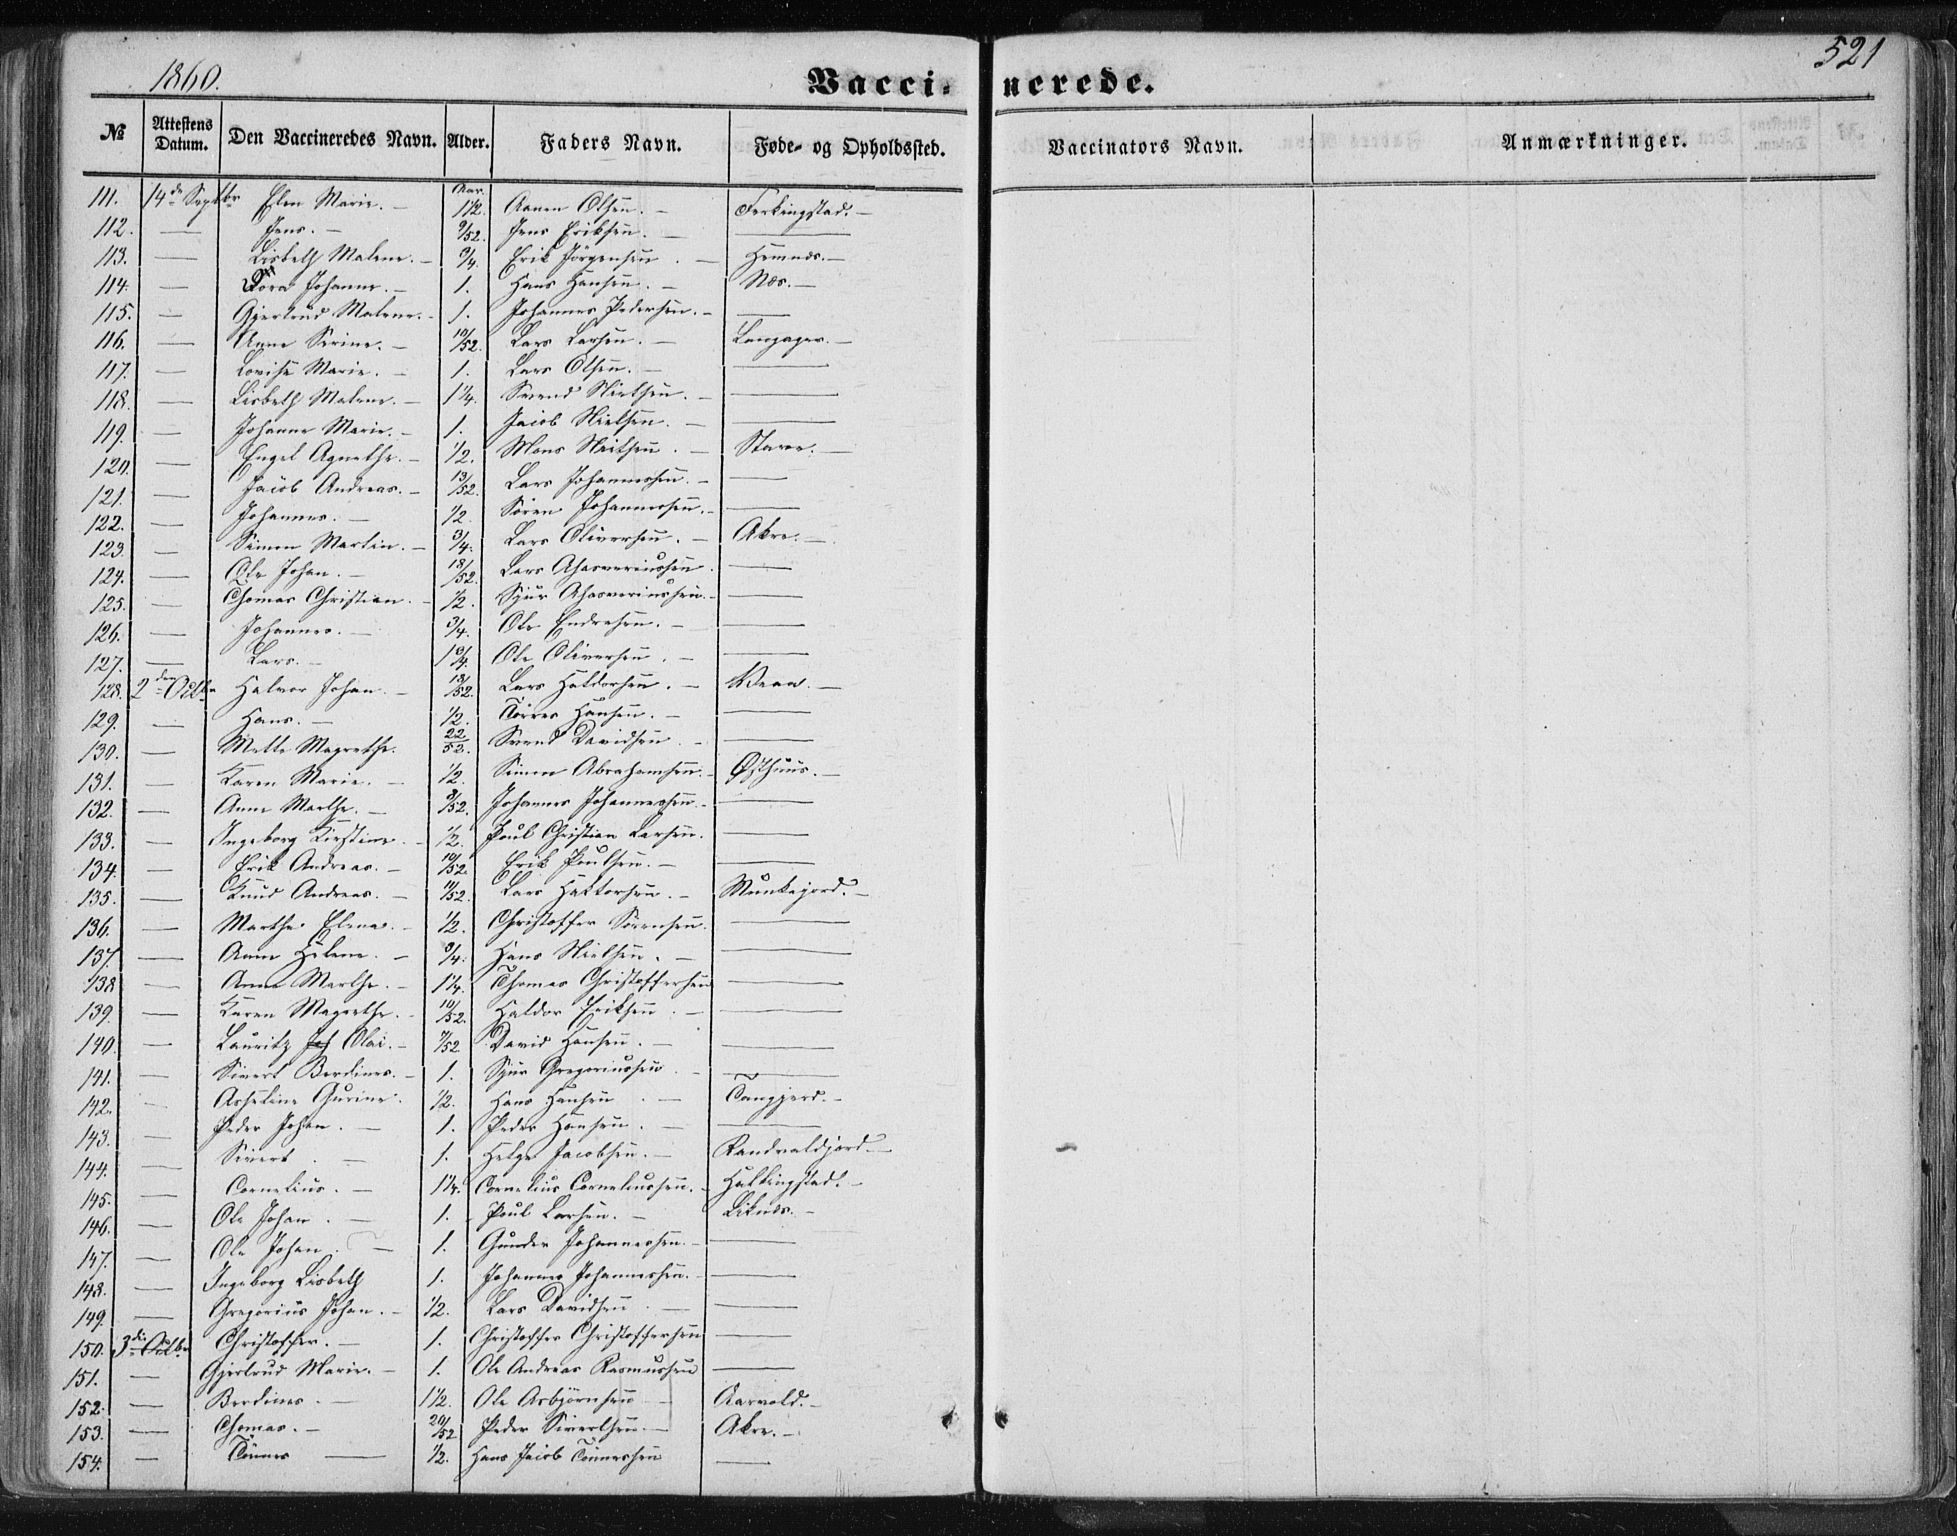 1860.
521
Vacci-nerede.
№ Attestens Datum. Den Vaccineredes Navn. Alder. Faders Navn. Føde- og Opholdssted. Vaccinators Navn. Anmærkninger.
111. 14de Septbr Elen Marie. — Aar. 1 1/2. Aanen Olsen. — Ferkingstad. —
112. — Jens. — 9/52. Jens Eriksen. — —
113. — Lisbeth Malene. — 3/4. Erik Jörgensen. — Hemnæs. —
114. — Johanne. — 1. Hans Hansen. — Næs. —
115. — Gjertrud Malene. — 1. Johannes Pedersen. — —
116. — Anne Serine. — 10/52. Lars Larsen. — Langager. —
117. — Lovise Marie. — 1. Lars Olsen. — —
118. — Lisbeth Malene. — 1 1/4. Svend Nielsen. — —
119. — Johanne Marie. — 1. Jacob Nielsen. — —
120. — Engel Agnethe. — 1/2. Mons — Stavre. —
121. — Jacob Andreas. — 13/52. Lars Johannessen. — —
122. — Johannes. — 1/2. Sören Johannessen. — —
123. — Simon Martin. — 3/4. Lars Oliversen. — Akre. —
124. — Ole Johan. — 18/52. Lars Ahasveriussen. —
125. — Thomas Christian. — 1/2. Sjur Ahasveriussen. — —
126. — Johannes. — 3/4. Ole Endresen. — —
127. — Lars. — Ole Oliversen. — —
128. 2den Octbr Halvor Johan. — 13/52. Lars Haldorsen. — Veau. —
129. — Hans. — 1/2. Törres Hansen. — —
130. — Mette Magrethe. 22/52. Svend Davidsen. — —
131. — Karen Marie. — 1/2. Simon Abrahamsen. — Østhuus. —
132. — Anne Marthe. — 9/52. Johannes Johannessen. — —
133. — Ingeborg Kirstine. — 1/2. Poul Christian Larsen. —
134. — Erik Andreas. — 10/52. Erik Poulsen. — —
135. — Knud Andreas. — 11/52. Lars Haktorsen. — Munkejord. —
136. — Marthe Elena. — 1/2. Christoffer Sörensen. —
137. — Anne Helene. — 3/4. Hans Nielsen. — —
138 — Anne Marthe. — 1 1/4. Thomas Christoffersen —
139. — Karen Magrethe. — 10/52. Haldor Eriksen. — —
140. — Lauritz Joh Olai. — 7/52. David Hansen. — —
141. — Sivert Berdines. — 1. Sjur Gregoriussen — —
142. — Asseline Gurine. 1/2. Hans Hansen — Tangjerd. —
143. — Peder Johan. — 1. Peder Hansen. — —
144. — Sivert — 1. Helge Jacobsen. — Randvaldjord. —
145. — Cornelius. — 1 1/4. Cornelius Corneliussen. — Hakkingstad. —
146. — Ole Johan. — 1. Poul Larsen. — Liknes. —
147. — Ole Johan. — 1. Gunder Johannessen. — —
148. — Ingeborg Lisbeth 1. Johannes Johannessen. — —
149. — Gregorius Johan. — 1/2. Lars Davidsen. — —
150. 3die Octbr Christoffer. — 1. Christoffer Christoffersen —
151. — Gjertrud Marie. — 1. Ole Andreas Rasmussen —
152. — Berdines. — 1 1/2. Ole Asbjörnsen — Aarvold. —
153. — Thomas. — 20/52 Peder Sivertsen. — Akre. —
154. — Tönnes — 1/2. Hans Jacob Tönnessen —